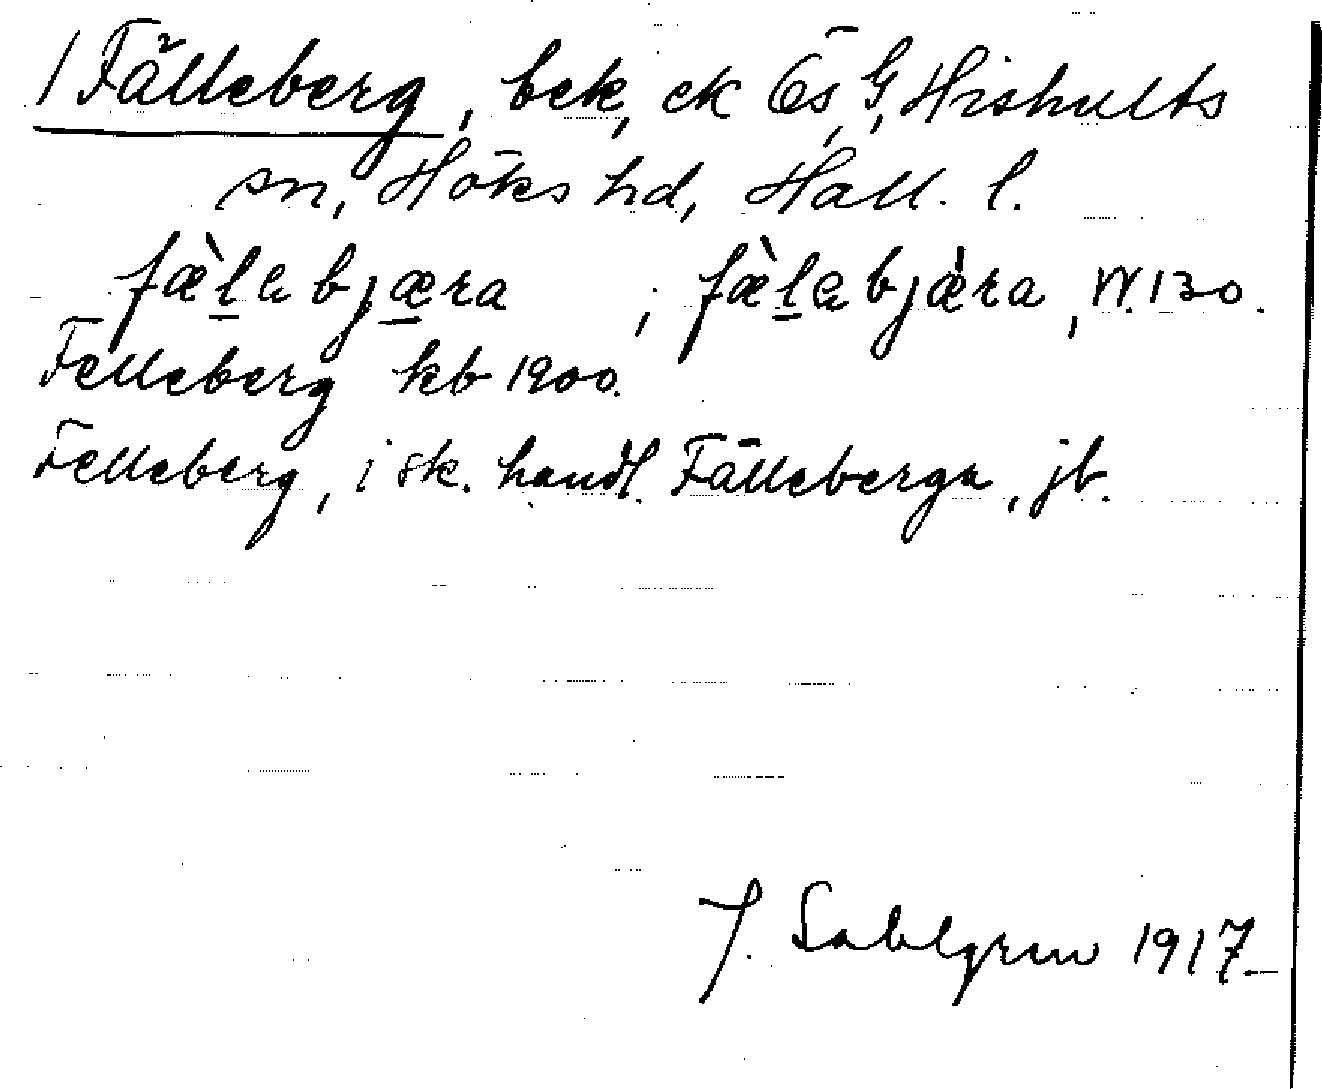 / Fälleberg, bek, ek Ös, G, Hishults
sn, Höks hd, Hall. l.
fæ̀lebjæra ; fæ̀lebjæ̀ra, W. 130.
Felleberg kb 1900.
Felleberg, i sk. handl. Fälleberga, jb.
J. Sahlgren 1917